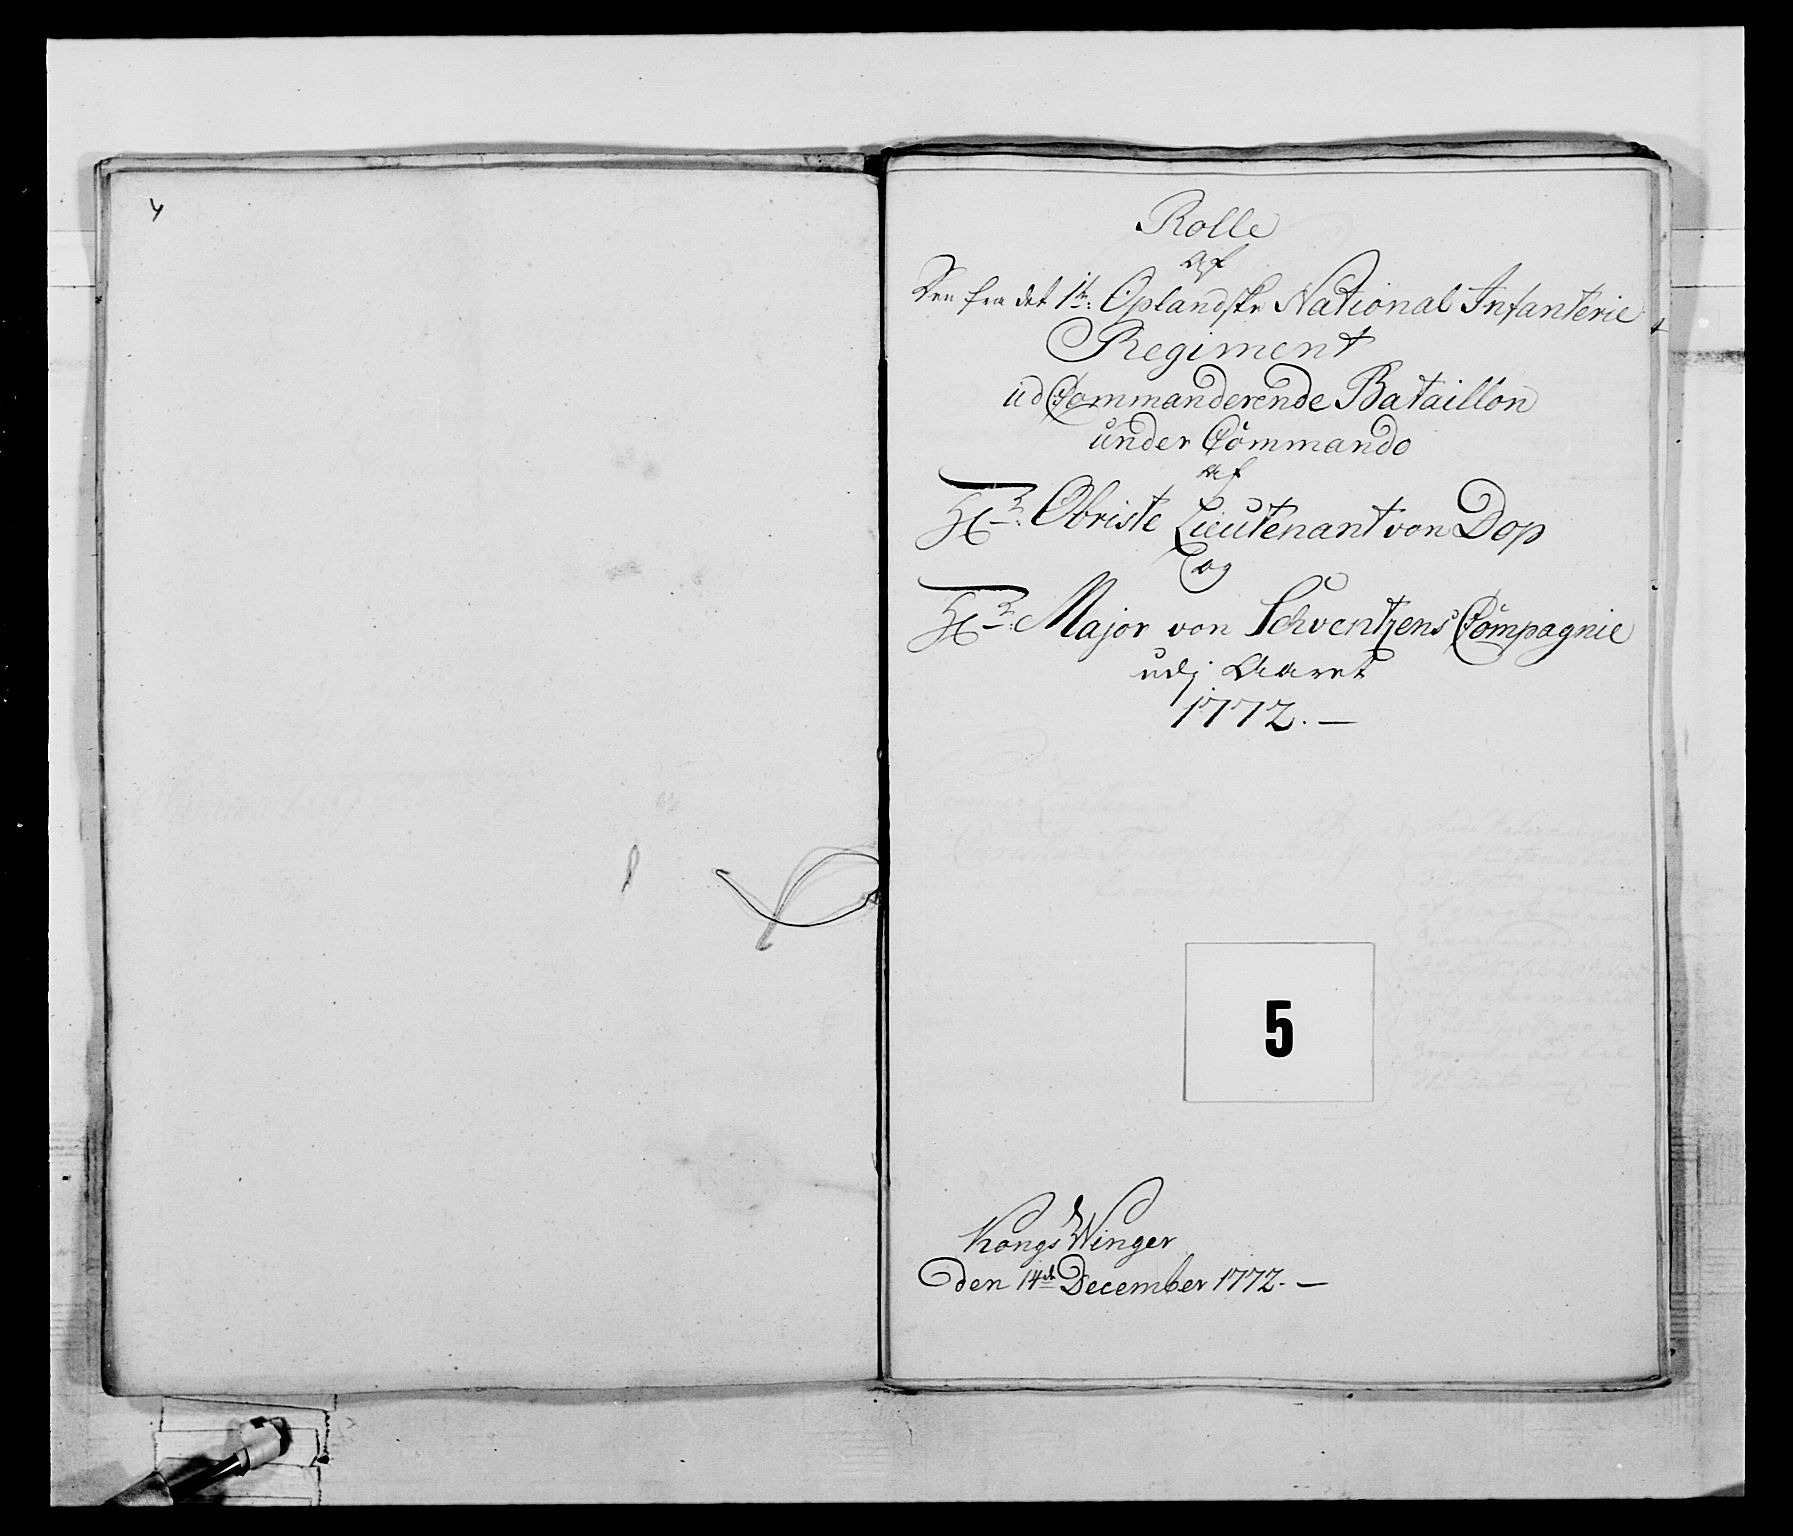 4
Rolle
Af
Den fra det 1te: Oplandske National Infanterie
Regiment
ud Commanderende Bataillon
under Commando
af
Hr: Obriste Lieutenant von Dop
og
Hr: Major von Schventzens Compagnie
udj Aaret
1772. —
5
Kongs Winger
den 14de December 1772. —